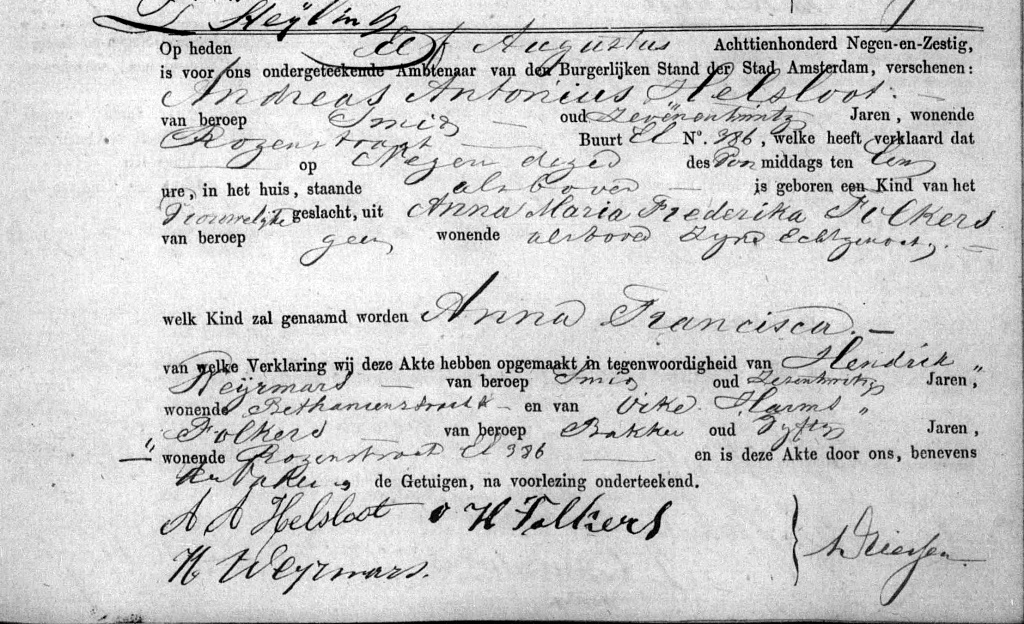 Heyling
Op heden elf Augustus Achttienhonderd Negen-en-Zestig,
is voor ons ondergeteekende Ambtenaar van den Burgerlijken Stand der Stad Amsterdam, verschenen:
Andreas Antonius Helsloot. —
van beroep Smid — oud Zevenentwintig Jaren, wonende
Rozenstraat — Buurt El N°. 386, welke heeft verklaard dat
op Negen dezer des Voor middags ten tien
ure, in het huis, staande als boven — is geboren een Kind van het
Vrouwelijke geslacht, uit Anna Maria Frederika Folkers
van beroep geen wonende als boven Zijne Echtgenoot, —
welk Kind zal genaamd worden Anna Francisca. —
van welke Verklaring wij deze Akte hebben opgemaakt in tegenwoordigheid van Hendrik „
Weyrmars — van beroep Smid oud Zesentwintig Jaren,
wonende Bethanienstraat — en van Ocke Harms „
„ Folkers van beroep Bakker oud Vyftig Jaren,
— wonende Rozenstraat El 386 — en is deze Akte door ons, benevens
de Getuigen, na voorlezing onderteekend.
A A Helsloot o H Folkers
H Weyrmars.